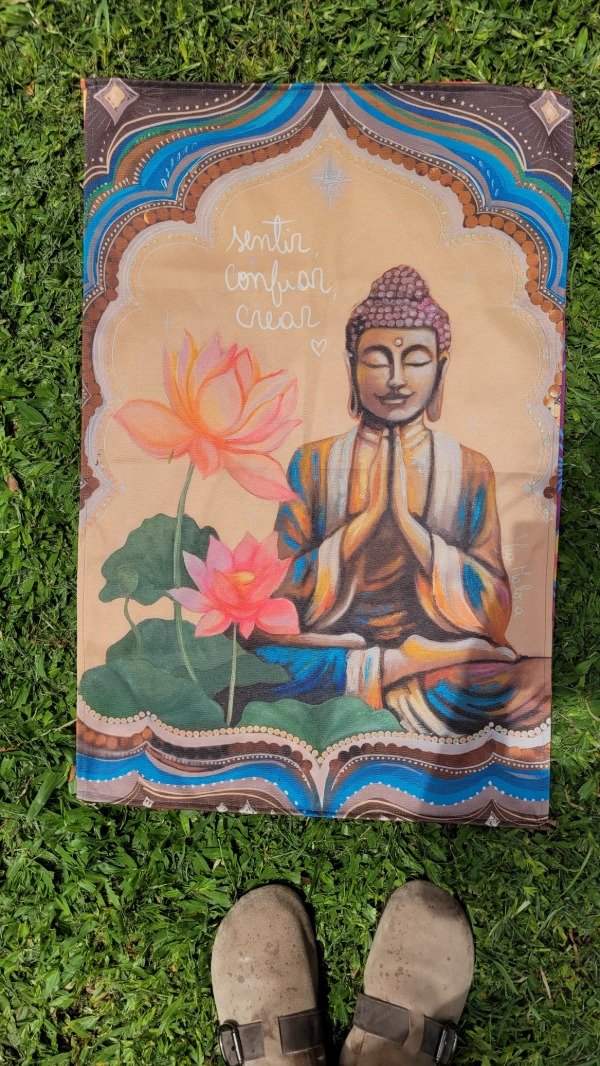 sentir,
confiar,
crear